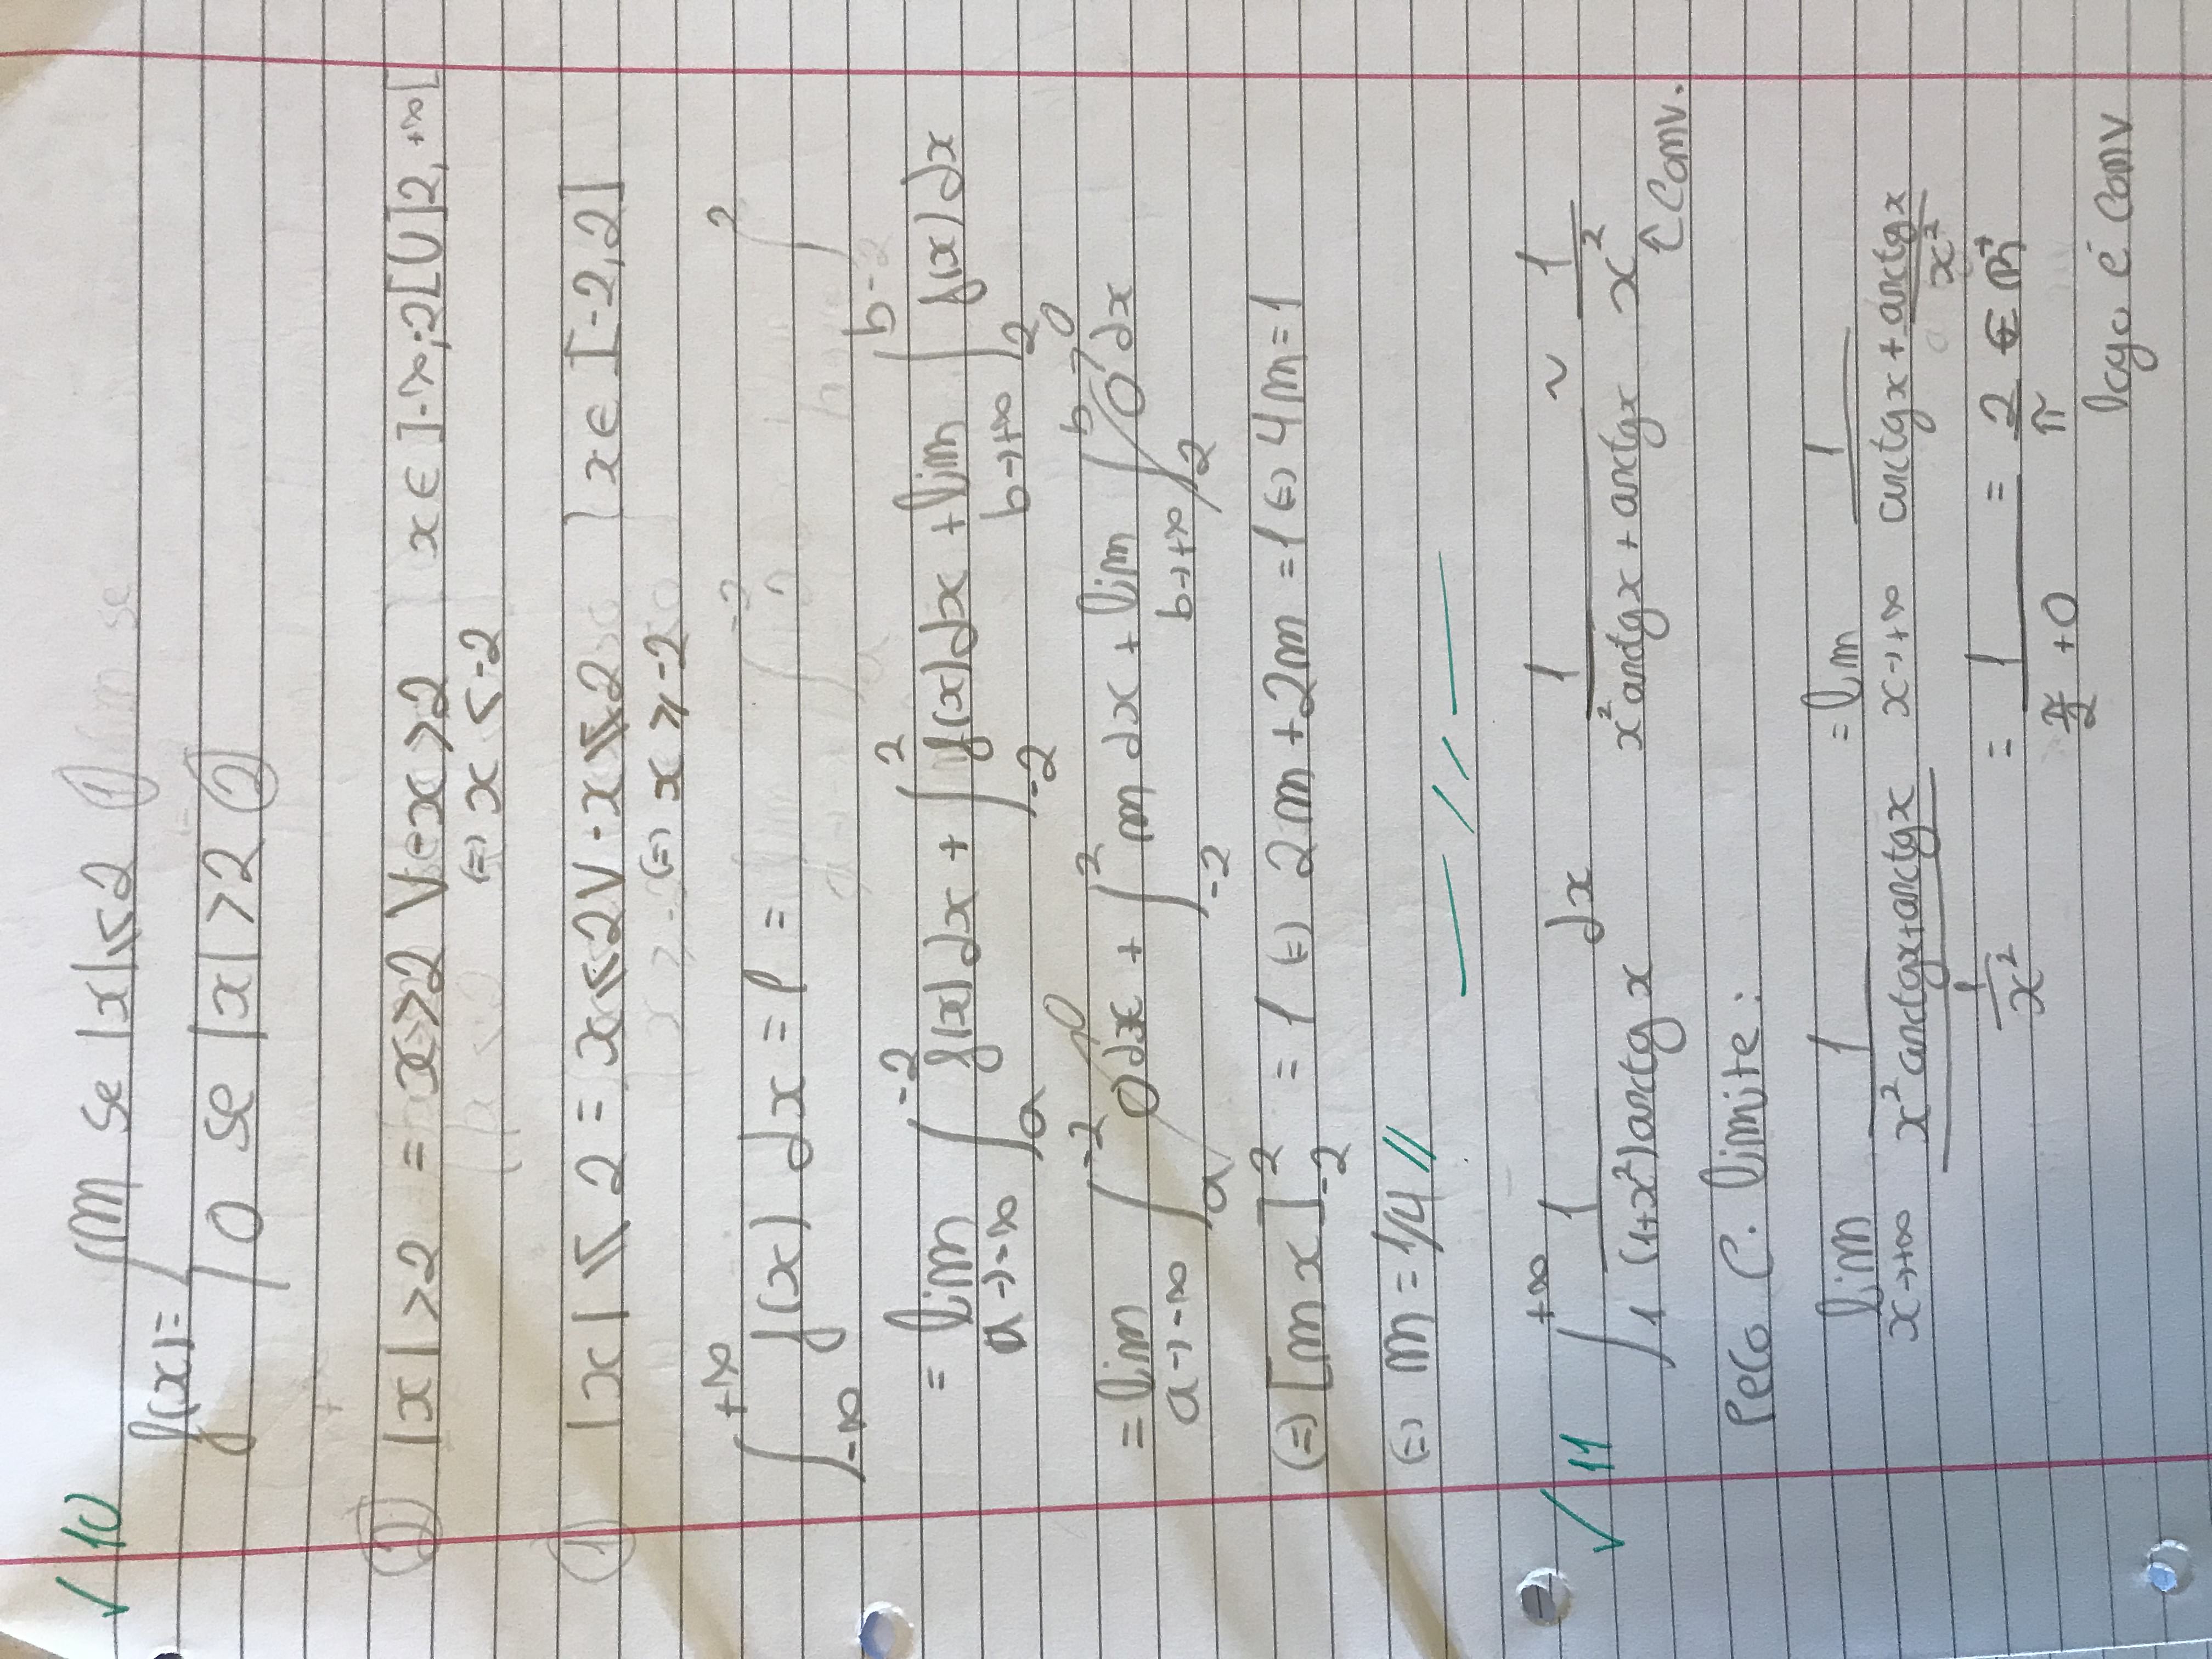 ✓ 10
f(x) = { m se |x| ⩽ 2 ①
0 se |x| > 2 ②
② |x| > 2 = x > 2 V -x > 2 x ∈ ]-∞; -2[ U ]2, +∞[
⇔ x < -2
① |x| ⩽ 2 = x ⩽ 2 V -x ⩽ 2 x ∈ [-2, 2]
⇔ x ⩾ -2
∫_{-∞}^{+∞} f(x) dx = 1 =
= lim_{a→-∞} ∫_a^{-2} f(x) dx + ∫_{-2}^{2} f(x) dx + lim_{b→+∞} ∫_2^b f(x) dx
= lim_{a→-∞} ∫_a^{-2} 0 dx →0 + ∫_{-2}^{2} m dx + lim_{b→+∞} ∫_2^b 0 dx →0
⇔ [m x]_{-2}^{2} = 1 ⇔ 2m + 2m = 1 ⇔ 4m = 1
⇔ m = 1/4 //
— // —
✓ 11 ∫_1^{+∞} 1/((1+x²) arctg x) dx 1/(x² arctg x + arctg x) ~ 1/x²
↑ conv.
Pelo C. limite:
lim_{x→+∞} (1/(x² arctg x + arctg x))/(1/x²) = lim_{x→+∞} 1/(arctg x + arctg x/x²)
= 1/(π/2 + 0) = 2/π ∈ ℝ⁺
logo é conv